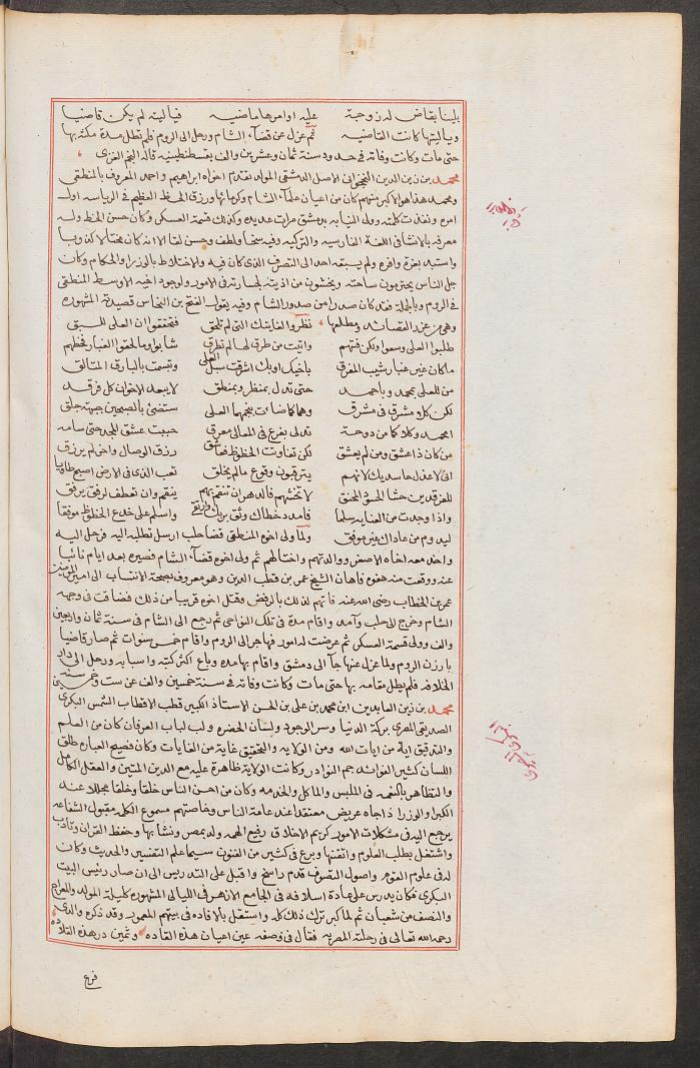 بلينا بقاض له زوجة عليه اوامرها ماضيه فيا ليته لم يكن قاضيا
ويا ليتها كانت القاضيه ثم عزل عن قضاء الشام ورحل الى الروم فلم تطل مدة مكثه بها
حتى مات وكانت وفاته فى حدود سنة ثمان وعشرين والف بقسطنطينيه قاله النجم الغزى
محمد بن زين الدين الاصل الدمشقى المولد تقدم اخواه ابراهيم واحمد المعروف بالمنطقى
ومحمد هذا هو الاكبر منهم كان من اعيان علماء الشام وكرمائها ورزق الحظ العظيم فى الرياسه اوله
امره ونفذت كلمته وولى النيابه بدمشق مرات عديده وكذلك قسمة العسكر وكان حسن الخط وله
معرفه بالانشا فى اللغة الفارسيه والتركيه وفيه سخا ولطف وحسن لقا الا انه كان
واستبد بعزة وافره ولم يسبقه احد الى التصرف الذى كان فيه والاختلاط بالوزرا والحكام وكان
جل الناس يحترمون ساحته ويخشون من اذيته لجسارته فى الامور ولوجود اخيه الاوسط المنطقى
فى الروم وبالجملة فقد كان صدرا من صدور الشام وفيه يقول الفتح بن النحاس قصيدته المشهوره
وهى من غرر القصائد ومطلعها نظروا لغايتك التى لم تلحق فتحققوا ان العلى للسبق
طلبوا العلى وسعوا ولكن فتهم واتيت من طرق لها لم تطرق شابوا وما لحقوا الغبار فحظهم
ما كان غير غبار شيب المفرق باخيك او بك اشرقت سبل العلى وتبسمت بالبارق المتالق
من للعلى بمحمد وباحمد حتى تدل بمنظر وبمنطق لا يبعد الاخوان كل فرقد
لكن كل مشرق فى مشرق وهما كما ضات بنجمها العلى ستضئ بالصبحين جبهة جلق
امحمد وكلاكما من دوحة تدلى بفرع فى المعالى معرق حببت عشق المجد حتى سامه
من كان ذا عشق ومن لم يعشق لكن تفاوت الحظوظ فعاشق رزق الوصال واخر لم يرزق
انى لاعذل حاسديك لانهم يترقبون وقوع ما لم يخلق تعب الذى فى الارض اصبح طالبا
للفرقدين حشا الحسود المحنق لا تخشهم فالدهر ان تنقم بهم ينقم وان تعطف لرفق يرفق
واذا وجدت من العنايه سلما فامدد خطاك وثق بربك وارتق واسلم على خدع الحظوظ موفقا
ليدوم من عاداك غير موفق ولما ولى اخوه المنطقى قضا حلب ارسل تطلبه اليه فرحل اليه
واخذ معه اخاه الاصغر ووالدتهم واختا لهم ثم ولى اخوه قضاء الشام فصيره بعد ايام نائبا
عنه ووقعت منه هفوه فاهان الشيخ عمر بن قطب الدين وهو معروف بصحة الانتساب الى امير المومنين
عمر بن الخطاب رضى الله عنه فاتهم لذلك بالرفض وقتل اخوه قريبا من ذلك فضاقت فى وجهه
الشام وخرج الى حلب وآمد واقام مدة فى تلك النواحى ثم رجع الى الشام فى سنة ثمان واربعين
والف وولى قسمة العسكر ثم عرضت له امور فهاجر الى الروم واقام خمس سنوات ثم صار قاضيا
بارزن الروم ولما عزل عنها جآ الى دمشق واقام بها مده وباع اكثر كتبه واسبابه ورحل الى دار
الخلافه فلم يطل مقامه بها حتى مات وكانت وفاته فى سنة خمسين والف عن ست وخمسين سنه
محمد بن زين العابدين ابن محمد بن على بن الحسن الاستاذ الكبير قطب الاقطاب الشمس البكرى
الصديقى المصرى بركة الدنيا وسر الوجود ولسان الحضره ولب لباب العرفان كان من العلم
والتدقيق اية من ايات الله ومن الولايه والتحقيق غاية من الغايات وكان فصيح العباره طلق
اللسان كثير الفوائد جم النوادر وكانت الولاية ظاهرة عليه مع الدين المتين والعقل الكامل
والتظاهر بالنعمه فى الملبس والماكل والخدمه وكان من احسن الناس خلقا وخلقا مجللا عند
الكبرا والوزرا ذا جاه عريض معتقدا عند عامة الناس وخاصتهم مسموع الكلمه مقبول الشفاعه
يرجع اليه فى مشكلات الامور كريم الاخلاق رفيع الهمه ولد بمصر ونشا بها وحفظ القران وتادب
واشتغل بطلب العلوم واتقنها وبرع فى كثير من الفنون سيما علم التفسير والحديث وكان
له فى علوم القوم واصول التصوف قدم راسخ واقبل على التدريس الى ان صار رئيس البيت
البكرى فكان يدرس على عادة اسلافه فى الجامع الازهر فى الليالى المشهوره كليلة المولد والمعراج
والنصف من شعبان ثم لما كبر ترك ذلك كله واستقل بالافاده فى بيتهم المعمور وقد ذكره والدى
رحمه الله تعالى فى رحلته المصريه فقال فى وصفه عين اعيان هذه القاده وثمين در هذه القلاده
فرع